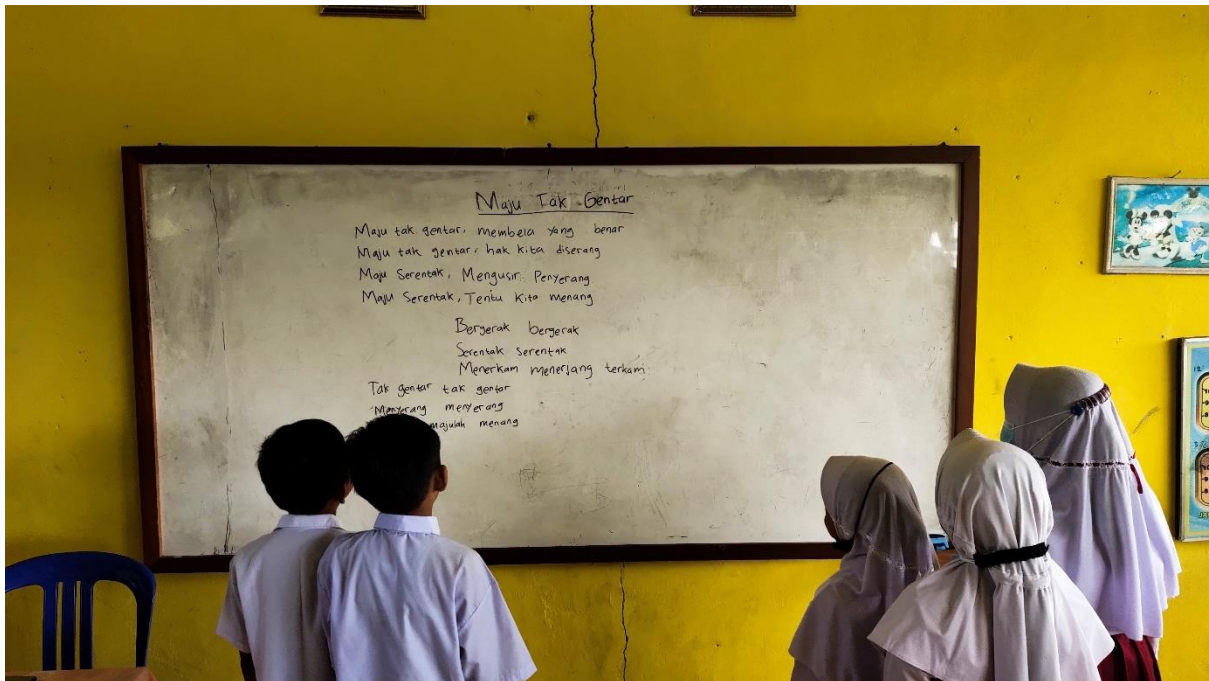 Maju Tak Gentar
Maju tak gentar, membela yang benar
Maju tak gentar, hak kita diserang
Maju Serentak, Mengusir Penyerang
Maju Serentak, Tentu Kita menang
Bergerak bergerak
Serentak Serentak
Menerkam menerjang terkam
Tak gentar tak gentar
Menyerang menyerang
majulah menang